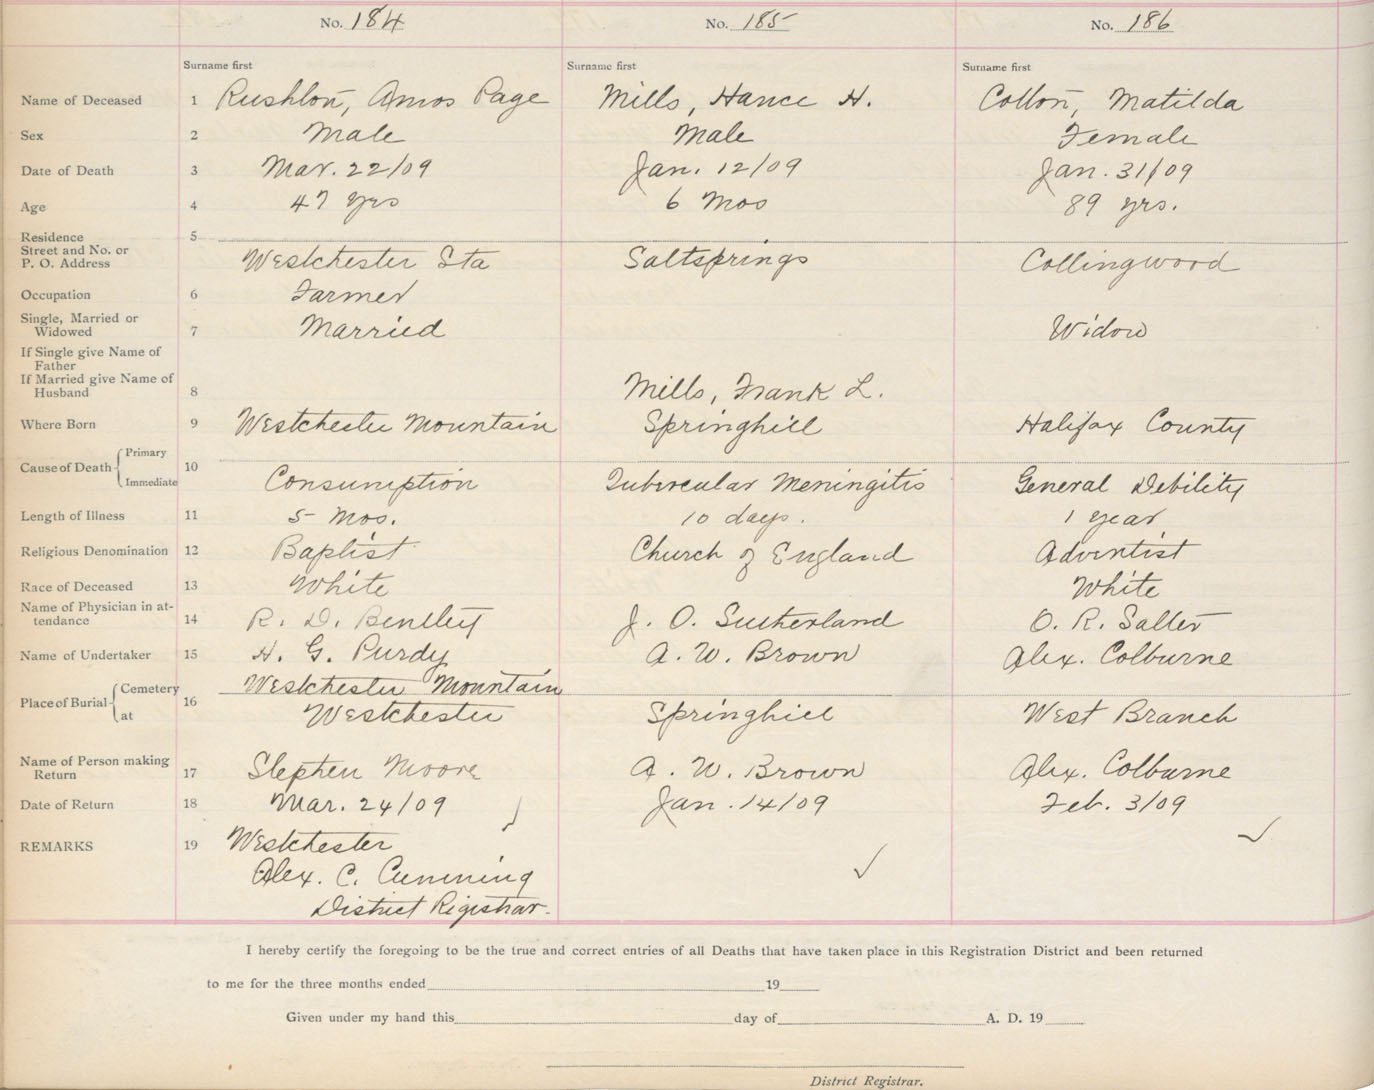 No. 184 No. 185 No. 186
Surname first Surname first Surname first
Name of Deceased 1 Rushton, Amos Page Mills, Hance H. Cotton, Matilda
Sex 2 Male Male Female
Date of Death 3 Mar. 22/09 Jan. 12/09 Jan. 31/09
Age 4 47 yrs 6 Mos 89 yrs.
Residence 5
Street and No. or
P. O. Address Westchester Sta Saltsprings Collingwood
Occupation 6 Farmer
Single, Married or
Widowed 7 Married Widow
If Single give Name of
Father
If Married give Name of
Husband 8 Mills, Frank L.
Where Born 9 Westchester Mountain Springhill Halifax County
Cause of Death Primary
10
Immediate Consumption Tubercular Meningitis General Debility
Length of Illness 11 5 Mos. 10 days. 1 year
Religious Denomination 12 Baptist Church of England Adventist
Race of Deceased 13 White White
Name of Physician in at-
tendance 14 R. D. Bentley J. O. Sutherland O. R. Salter
Name of Undertaker 15 H. G. Purdy A. W. Brown Alex. Colburne
Place of Burial Cemetery 16 Westchester Mountain
at Westchester Springhill West Branch
Name of Person making
Return 17 Stephen Moore A. W. Brown Alex. Colburne
Date of Return 18 Mar. 24/09 Jan. 14/09 Feb. 3/09
REMARKS 19 Westchester
Alex. C. Cumming
District Registrar.
I hereby certify the foregoing to be the true and correct entries of all Deaths that have taken place in this Registration District and been returned
to me for the three months ended 19
Given under my hand this day of A. D. 19
District Registrar.